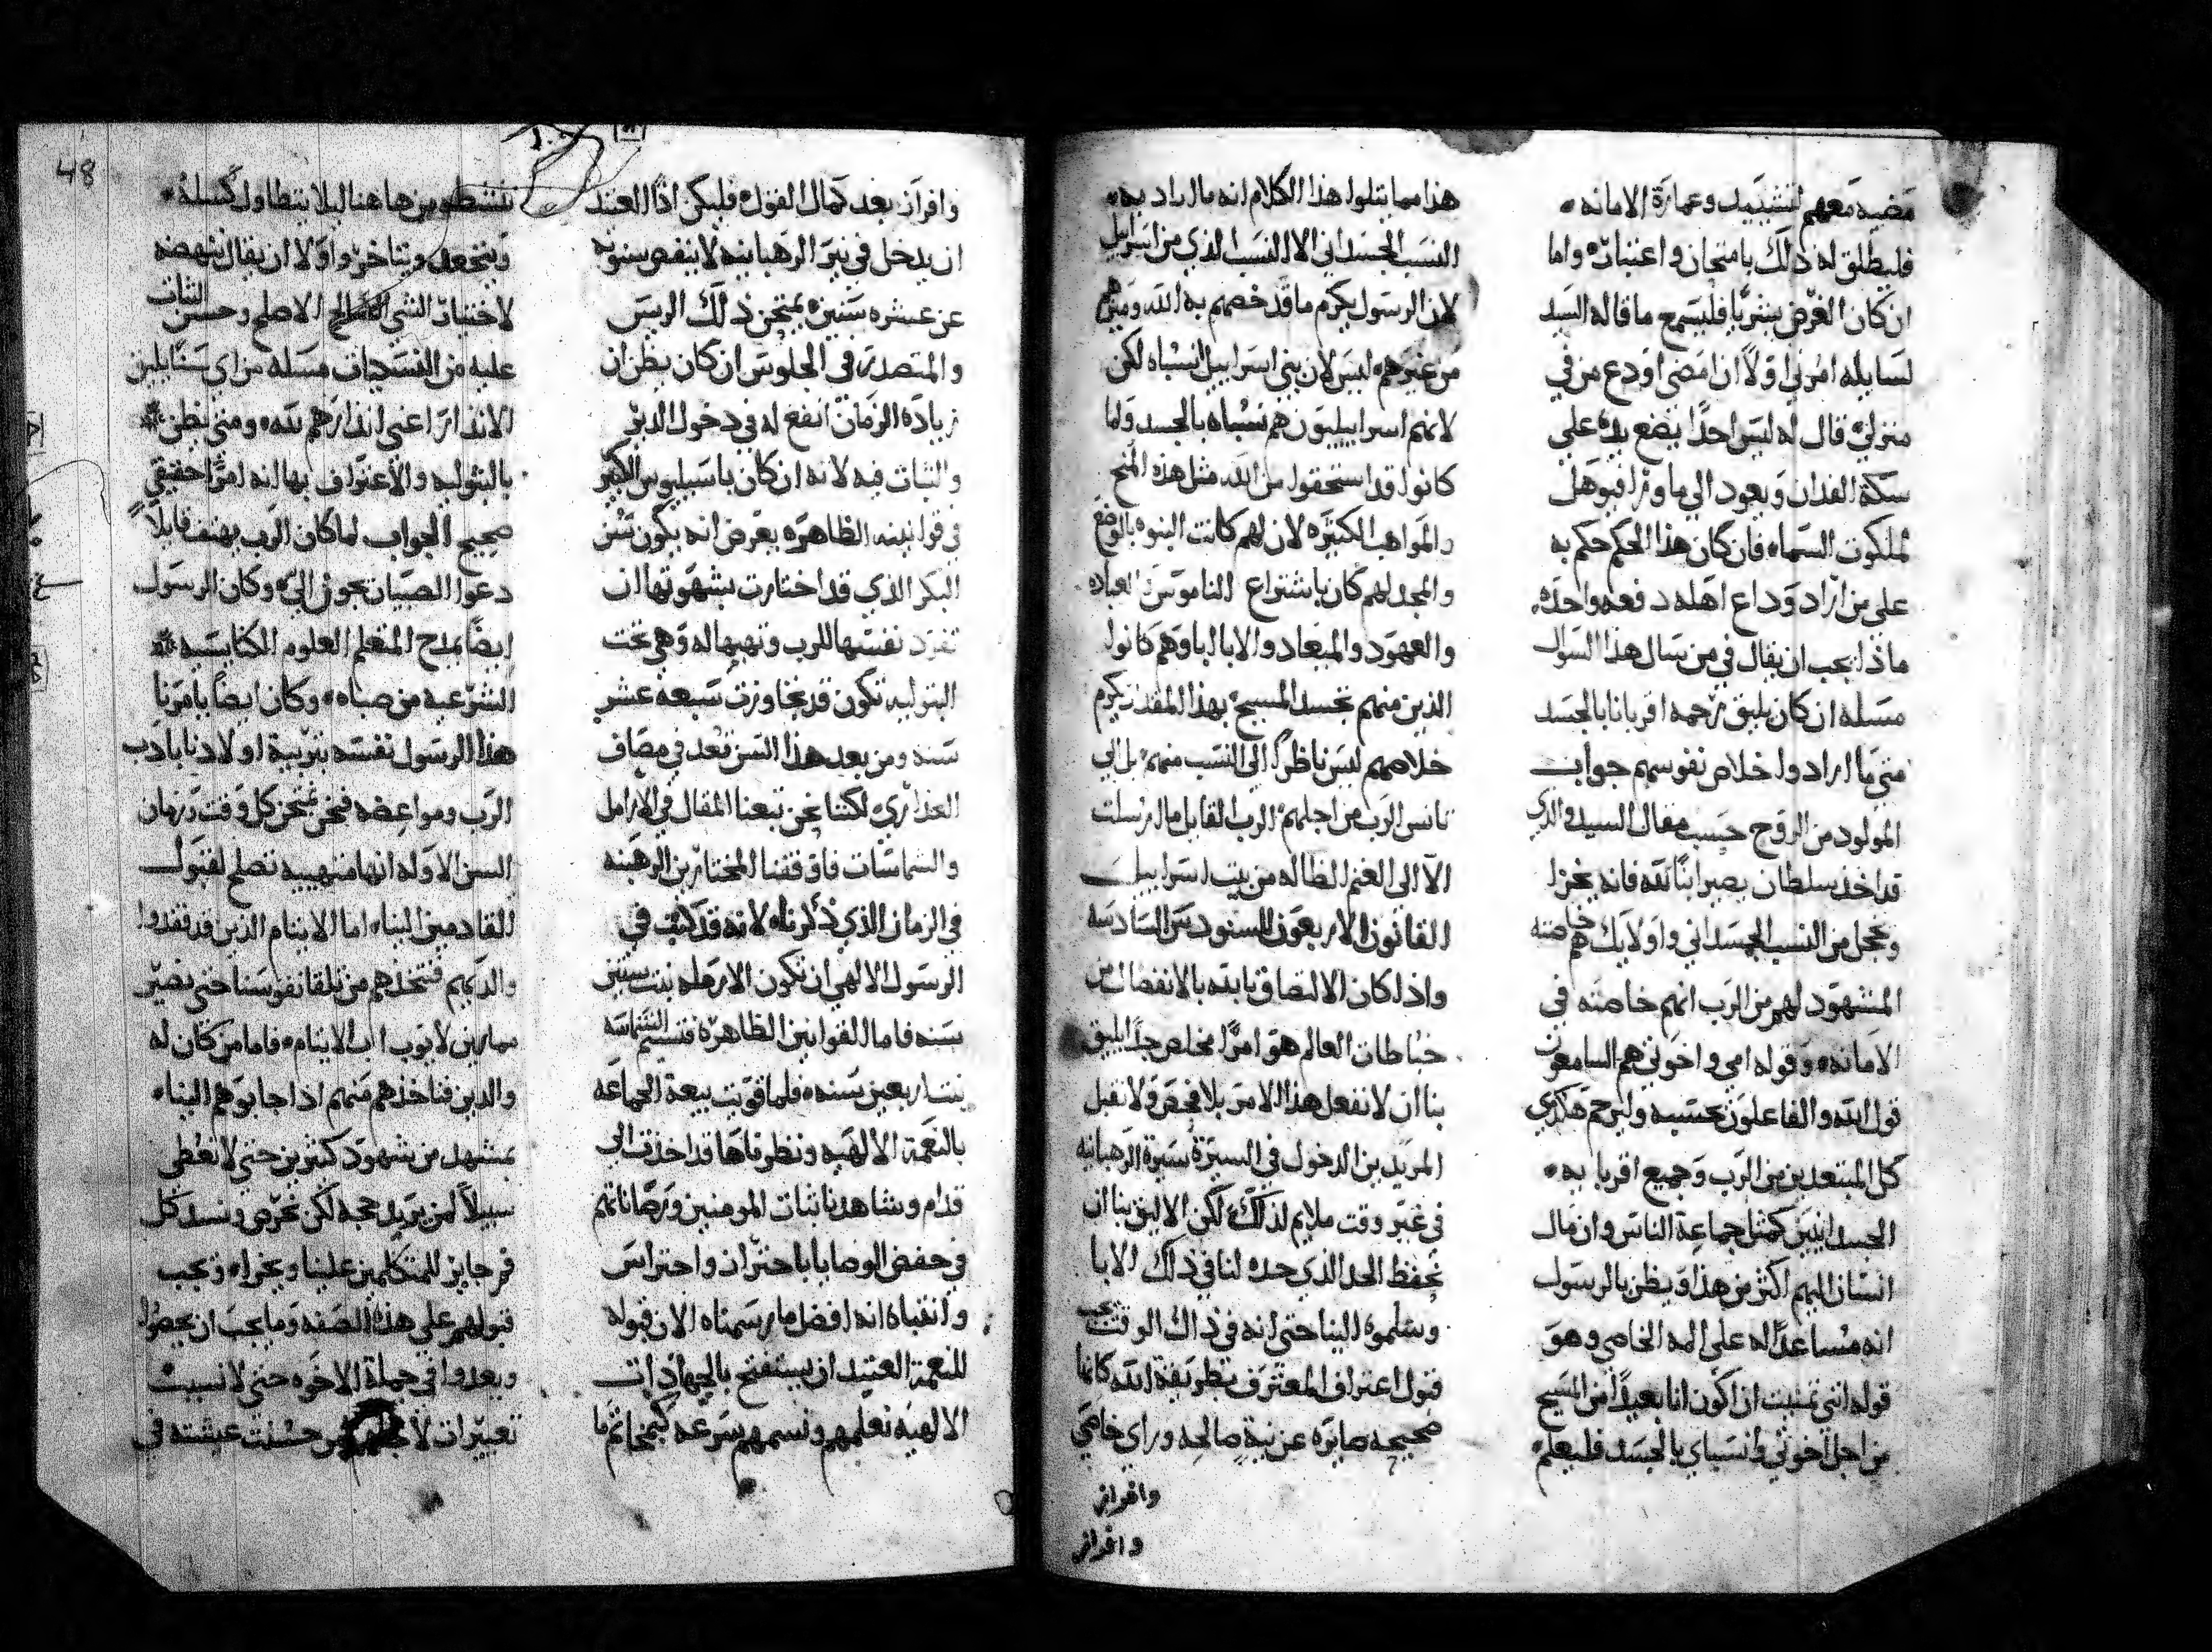 مضيه معهم لتشييد وعمارة الامانه
فليطلق له ذلك بامتحان واعتبار واما
ان كان الغرض بشريا فليسمع ما قاله السيد
لسايله امرني اولا ان امضى اودع من في
منزلي قال له ليس احدا يضع يده على
سكة الفدان ويعود الي ما ورا فيوهل
لملكوت السماء فان كان هذا الحكم حكم به
على من اراد وداع اهله دفعه واحده
ماذا يجب ان يقال في من سال هذا السوال
مسله ان كان يليق نرحم اقربانا بالجسد
متي ما ارادوا خلاص نفوسهم جواب
المولود من الروح حسب مقال السيد والذي
قد اخذ سلطان يصير ابنا لله فانه يخزا
ويخجل من النسب الجسداني واولايك هم خاصته
المشهود لهم من الرب انهم خاصته في
الامانه وقوله امي واخوتي هم السامعون
قول الله والفاعلون بحسبه وليرحم هكذي
كل المبتعدين من الرب وجميع اقربا به
الجسدانيين كمثل جماعة الناس وان مال
انسان اليهم اكثر من هذا ويظن بالرسول
انه مساعدا له على المه الخاصي وهو
قوله انني تمنيت ان اكون انا بعيدا من المسيح
من اجل اخوتي وانسباي بالجسد فليعلم
هذا مما يتلوا هذا الكلام انه ما اراد به
النسب الجسداني الا النسب الذي من اسراييل
لان الرسول يكرم ما قد خصهم به الله وميزهم
من غيرهم ليس لان بني اسراييل انسباه لكن
لانهم اسراييليون هم نسباه بالجسد ولما
كانوا قد استحقوا من الله مثل هذه المنح
والمواهب الكثيره لان لهم كانت البنوه بالوضع
والمجد لهم كان باشتراع الناموس والعباده
والعهود والميعاد والابا الباوهم كانوا
الذين منهم تجسد المسيح بهذا المقدار يكرم
خلاصهم ليس ناظرا الى النسب منهم بل الي
تانس الرب من اجلهم الرب القايل ما ارسلت
الا الى الغنم الظاله من بيت اسراييل
القانون الاربعون للسنودس السادسه
واذا كان الالتصاق بالله بالانفصال من
خباطات العالم هو امرا مخلص جدا يليق
بنا ان لا نفعل هذا الامر بلا فحص ولا نقبل
المريدين الدخول في السيرة سيرة الرهبانيه
في غير وقت ملايم لذلك لكن الاليق بنا ان
نحفظ الحد الذي حده لنا في ذلك الابا
وسلموه الينا حتى انه في ذاك الوقت يجب
قبول اعتراف المعترف بطريقة الله كانها
صحيحه صايره عن نية صالحه وراي خاصي
وافراز
وافراز
وافراز بعد كمال الفقد فليكن اذا العتيد
ان يدخل في نير الرهبانيه لا ينقص سنوه
عن عشره سنين يمتحن ذلك الريس
والمتصدر في الجلوس ان كان يظن ان
زيادة الزمان انفع له في دخول الدير
والثبات فيه لانه ان كان باسيليوس الكبير
في قوانينه الظاهره يعرض انه يكون سن
البكر الذي قد اختارت بشهوتها ان
تفرد نفسها للرب وتهبها له وهي تحت
البتوليه تكون قد تجاوزت سبعه عشر
سنه ومن بعد هذا السن تعد في مصاف
العذاري لكننا نحن تبعنا المقال في الارامل
والشماسات فاوقفنا المختارين الرهبنه
في الزمان الذي ذكرناه لانه قد كتب في
الرسول الالهي ان تكون الارمله بنت ستين
سنه فاما القوانين الظاهره فتسم الشماسه
بنت اربعين سنه فلما قويت بيعة الجماعه
بالنعمة الالهيه ونظرناها قد اخذت الي
قدام وشاهدنا ثبات المومنين ورصاناتهم
في حفض الوصايا باحتراز واحتراس
وانقباه انه افضل ما رسمناه الان قبوله
للنعمة العتيد ان يستفتح بالجهادات
الالهيه نعلمهم ونسمهم بسرعه كمثل خاتم ما
ننشطو من هاهنا ليلا يتطاول كسله
ويتجعد ويتاخر واولا ان يقال ننهضه
لاختيار الشي الصالح الاصلح وحسن الثبات
عليه من القسجاف مسله من اي سن يقبلن
الانذار اعني انذارهم لله ومتى يظن
بالبتوليه والاعتراف بها انه امرا حقيقي
صحيح الجواب لما كان الرب يهتف قايلا
دعوا الصبيان يجون الي وكان الرسول
ايضا يمدح المتعلم العلوم الكنايسيه
الشرعيه من صباه وكان ايضا يامرنا
هذا الرسول نفسه بتربية اولادنا بادب
الرب ومواعضه فنحن نمتحن كل وقت وزمان
السن الاوله انها متهييه تصلح لقبول
القادمين الينا اما الايتام الذين قد فقدوا
والديهم فنتخذهم من تلقا نفوسنا حتي نصير
مماثلين لايوب اب الايتام فاما من كان له
والدين فناخذهم منهم اذا جابوهم الينا
بمشهد من شهود كثيرين حتي لا نعطي
سبيلا لمن يريد حجه لكن نحرص ونسد كل
فم جايز للمتكلمين علينا وبخراه ويجب
قبولهم علي هذه الصفه وما يجب ان يحصوا
ويعدوا في جملة الاخوه حتى لا نسبب
تعييرات لاجلهم من حسنت عيشته في
48